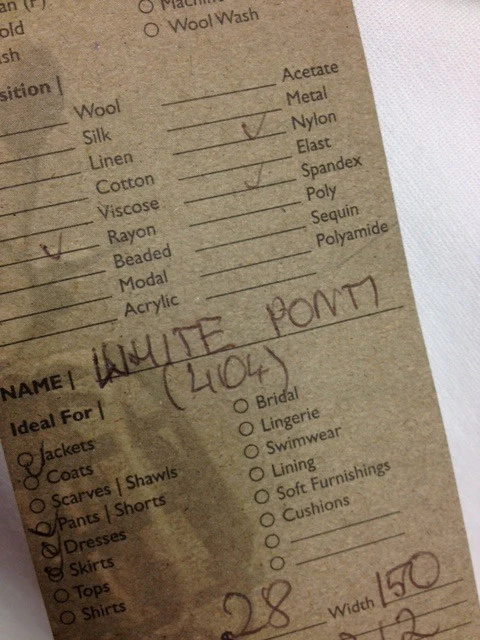 Machine
old
Wool Wash
sition |
Wool
Acetate
Silk
Metal
Linen
Nylon
Cotton
Elast
Viscose
Spandex
Rayon
Poly
Beaded
Sequin
Modal
Polyamide
Acrylic
NAME | WHITE PONTI
(404)
Ideal For |
Jackets
Bridal
Coats
Lingerie
Scarves | Shawls
Swimwear
Pants | Shorts
Lining
Dresses
Soft Furnishings
Skirts
Cushions
Tops
Shirts
28 Width 150